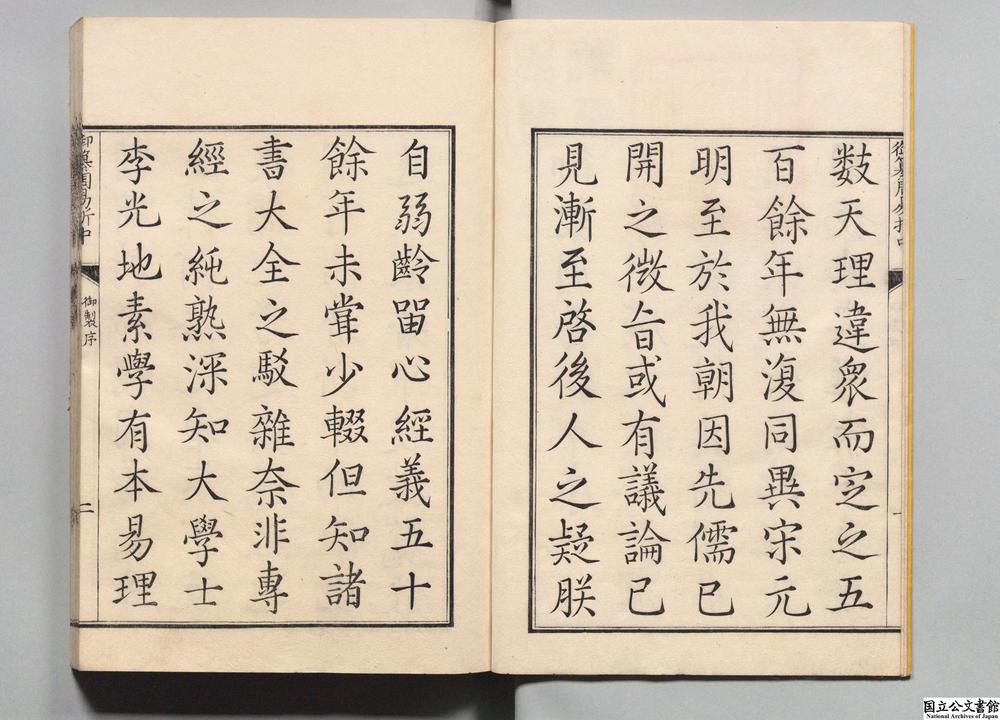 數天理違眾而定之五
百餘年無復同異宋元
明至於我朝因先儒已
開之微旨或有議論已
見漸至啓後人之疑朕
自弱齡留心經義五十
餘年未嘗少輟但知諸
書大全之駁雜奈非專
經之純熟深知大學士
李光地素學有本易理
御纂周易折中
御製序
二
国立公文書館
National Archives of Japan